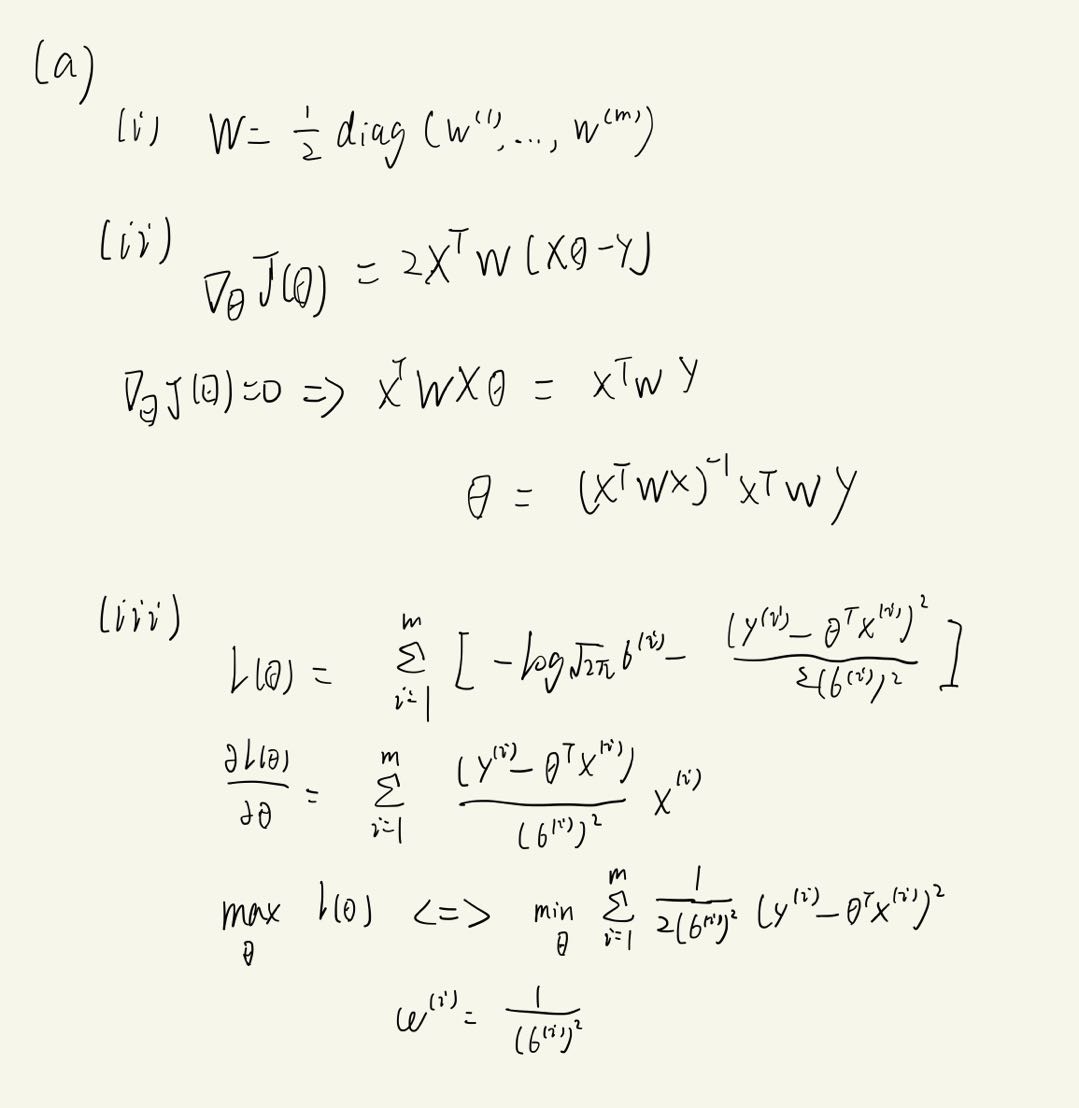 (a)
(i) W = 1/2 diag (w^(1), ..., w^(m))
(ii) ∇_θ J(θ) = 2X^T W (Xθ - Y)
∇_θ J(θ) = 0 => X^T W X θ = X^T W Y
θ = (X^T W X)^-1 X^T W Y
(iii) L(θ) = Σ_{i=1}^{m} [ - log √2π σ^(i) - (y^(i) - θ^T x^(i))^2 / 2(σ^(i))^2 ]
∂L(θ)/∂θ = Σ_{i=1}^{m} (y^(i) - θ^T x^(i)) / (σ^(i))^2 x^(i)
max_θ l(θ) <=> min_θ Σ_{i=1}^{m} 1 / 2(σ^(i))^2 (y^(i) - θ^T x^(i))^2
w^(i) = 1 / (σ^(i))^2